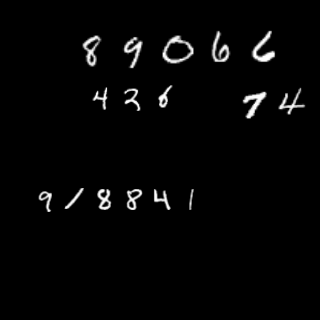 89066
426 74
918841